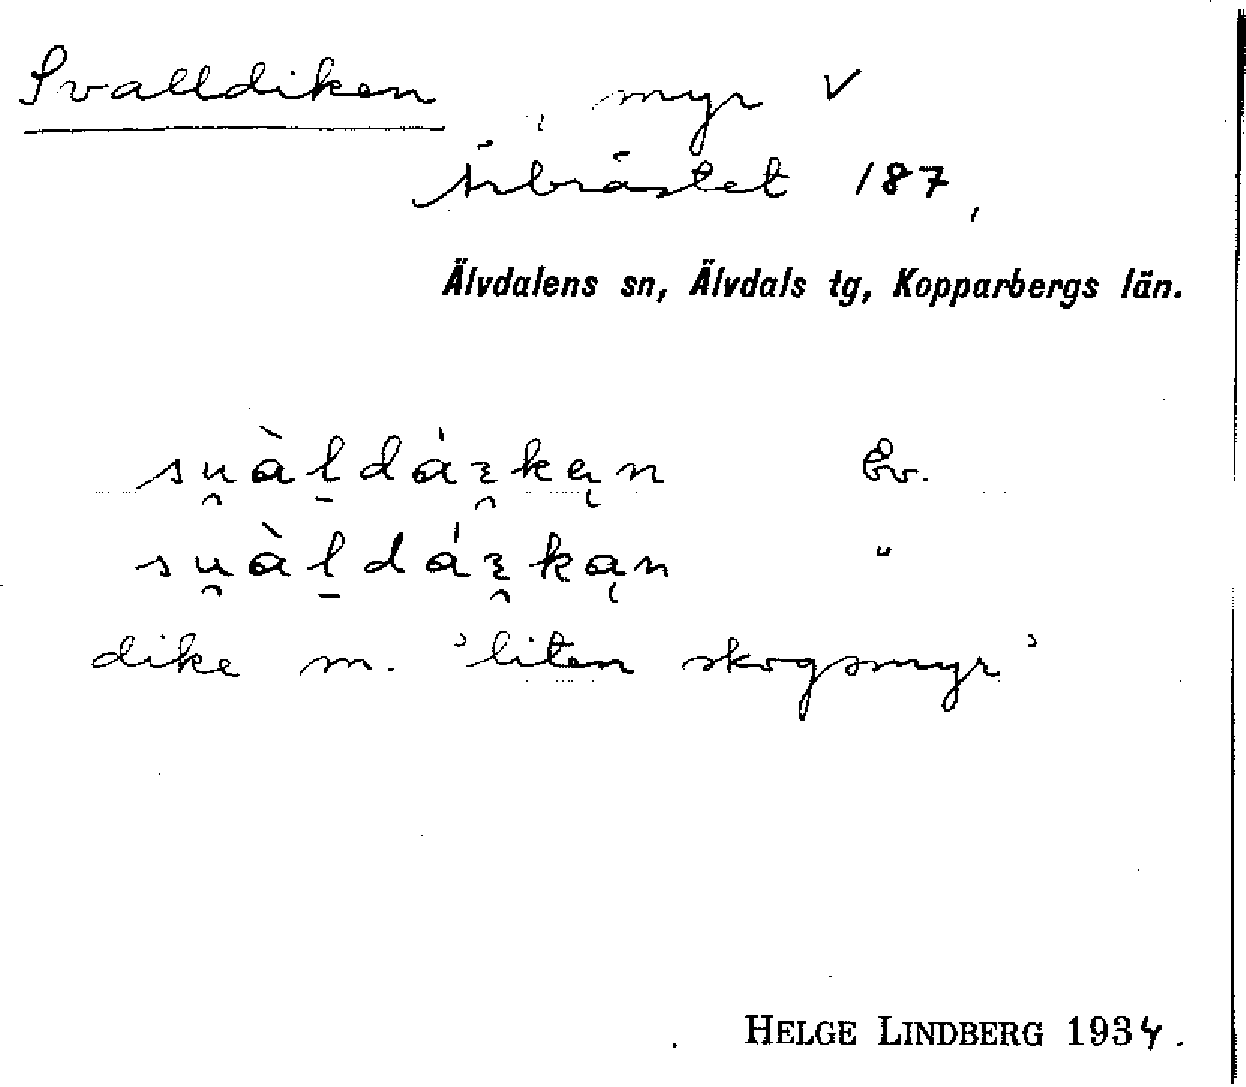 Svalldiken, myr V
Näbråstet 187,
Älvdalens sn, Älvdals tg, Kopparbergs län.
su̯àl̠dáɪ̯kąn Ev.
su̯àl̠dáɪ̯kąn "
dike m. 'liten skogsmyr'
HELGE LINDBERG 1934.